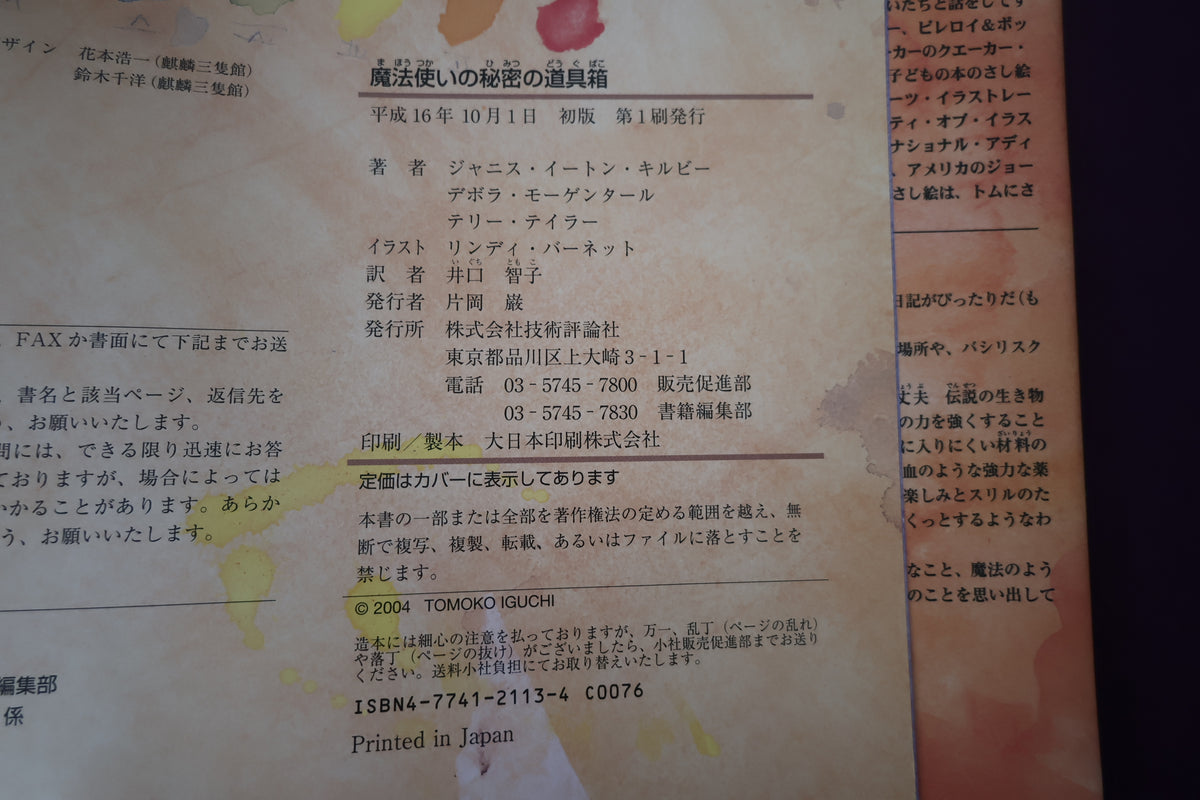 ザイン 花本浩一(麒麟三隻館)
鈴木千洋(麒麟三隻館)
FAXか書面にて下記までお送
書名と該当ページ、返信先を
、お願いいたします。
問には、できる限り迅速にお答
ておりますが、場合によっては
かかることがあります。あらか
う、お願いいたします。
編集部
係
魔法使いの秘密の道具箱
ま ほう つか ひ みつ どう ぐ ばこ
平成16年10月1日 初版 第1刷発行
著 者 ジャニス・イートン・キルビー
デボラ・モーゲンタール
テリー・テイラー
イラスト リンディ・バーネット
い ぐち ともこ
訳 者 井口 智子
発行者 片岡 巌
発行所 株式会社技術評論社
東京都品川区上大崎3-1-1
電話 03-5745-7800 販売促進部
03-5745-7830 書籍編集部
印刷/製本 大日本印刷株式会社
定価はカバーに表示してあります
本書の一部または全部を著作権法の定める範囲を越え、無
断で複写、複製、転載、あるいはファイルに落とすことを
禁じます。
© 2004 TOMOKO IGUCHI
造本には細心の注意を払っておりますが、万一、乱丁(ページの乱れ)
や落丁(ページの抜け)がございましたら、小社販売促進部までお送り
ください。送料小社負担にてお取り替えいたします。
ISBN4-7741-2113-4 C0076
Printed in Japan
いたちと話をしてす
ー、ビレロイ&ボッ
ーカーのクエーカー・
子どもの本のさし絵
ーツ・イラストレー
ティ・オブ・イラス
ナショナル・アディ
、アメリカのジョー
さし絵は、トムにさ
日記がぴったりだ(も
場所や、バシリスク
丈夫 伝説の生き物
の力を強くすること
に入りにくい材料の
血のような強力な薬
楽しみとスリルのた
くっとするようなわ
なこと、魔法のよう
のことを思い出して